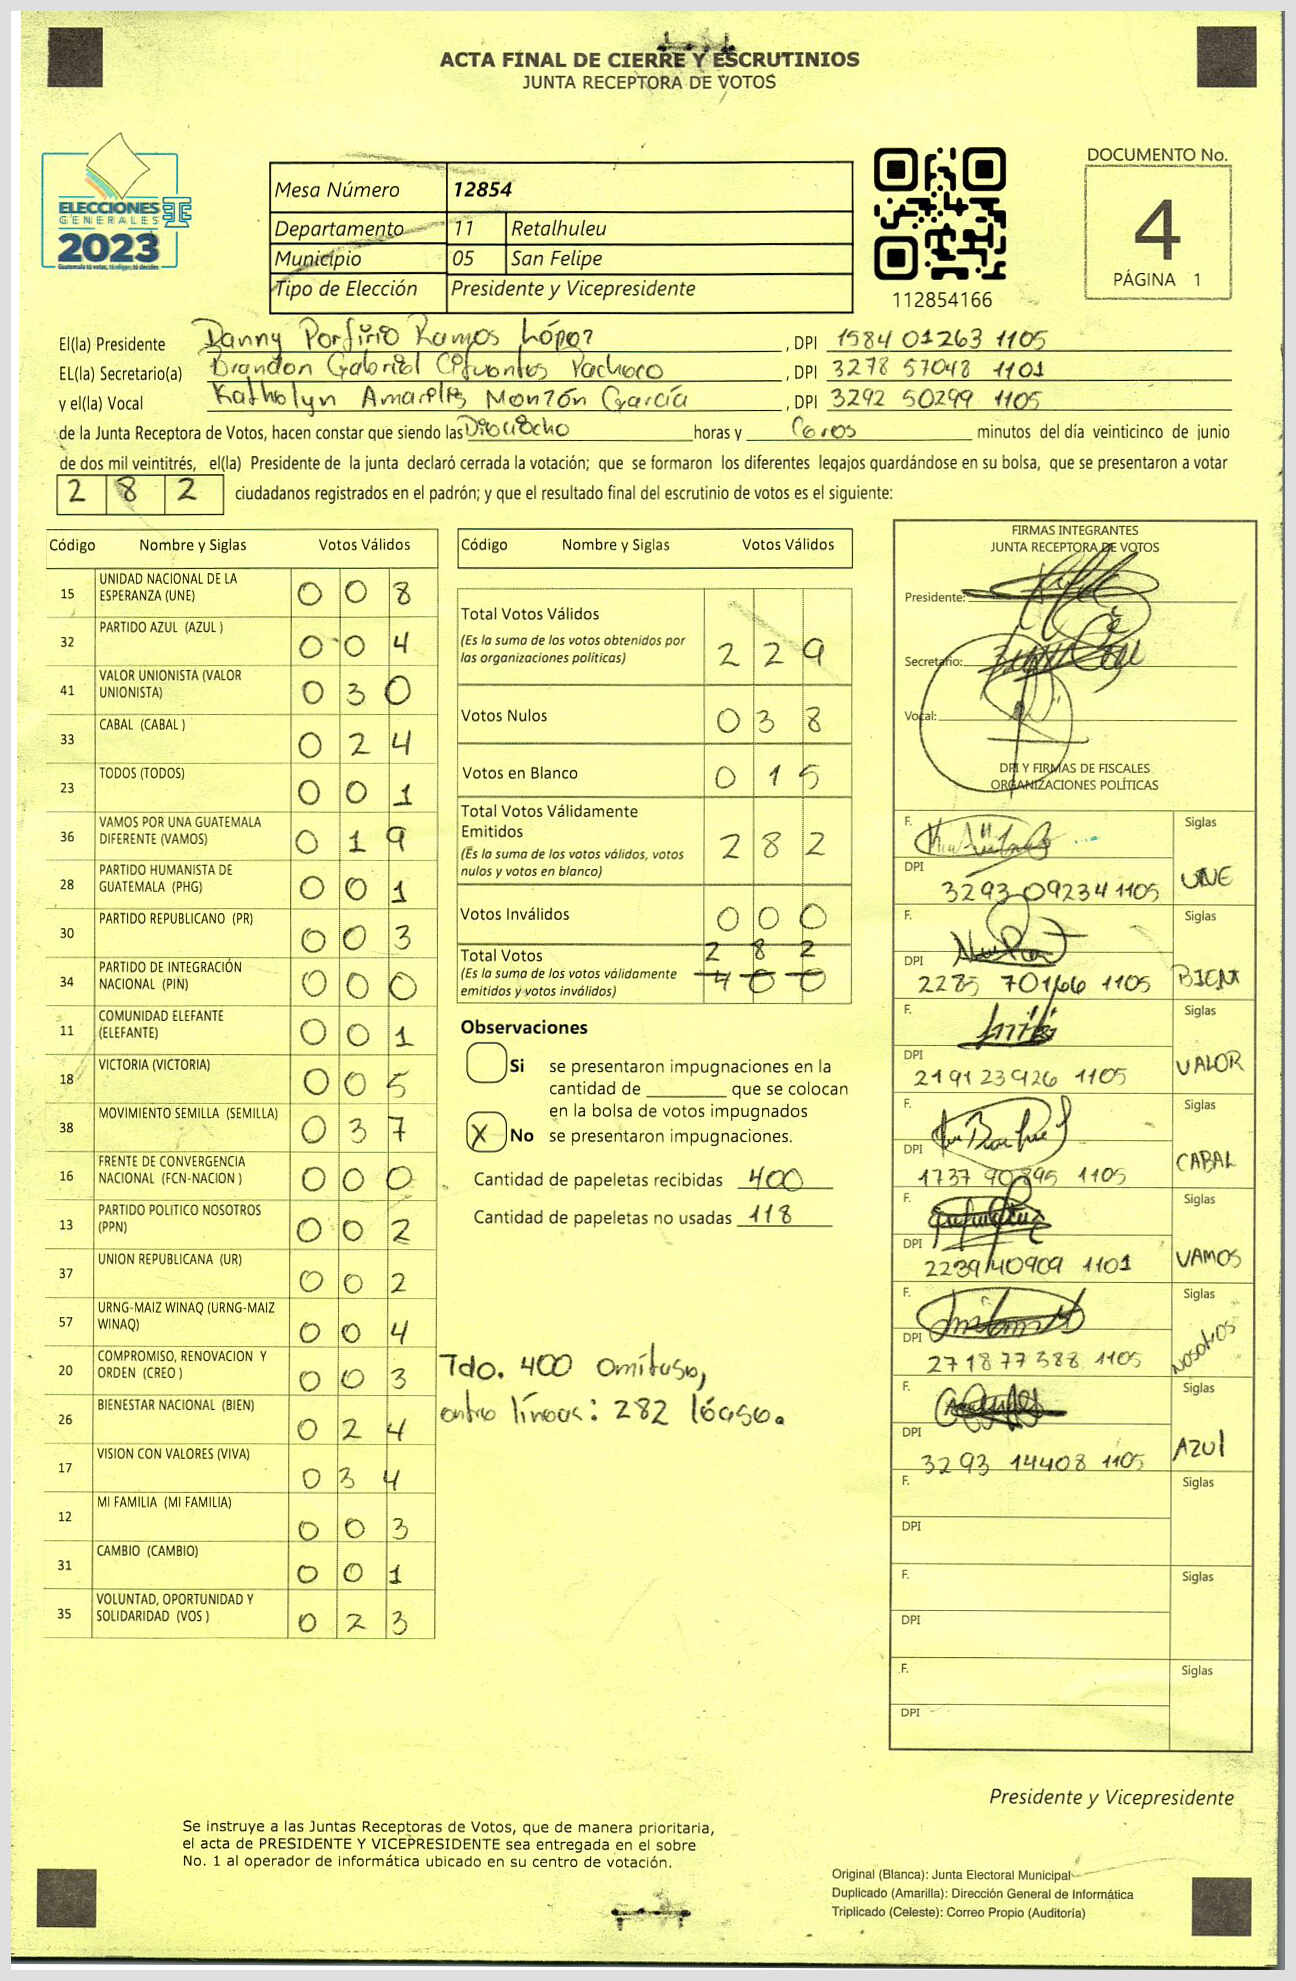 ACTA FINAL DE CIERRE Y ESCRUTINIOS
JUNTA RECEPTORA DE VOTOS
ELECCIONES
GENERALES
2023
Guatemala tú votas, tú eliges, tú decides
Mesa Número 12854
Departamento 11 Retalhuleu
Municipio 05 San Felipe
Tipo de Elección Presidente y Vicepresidente
112854166
DOCUMENTO No.
4
PÁGINA 1
El(la) Presidente Danny Porfirio Ramos López, DPI 1584 01263 1105
EL(la) Secretario(a) Brandon Gabriel Cifuentes Pacheco, DPI 3278 57048 1101
y el(la) Vocal Katholyn Amarilis Monzón García, DPI 3292 50299 1105
de la Junta Receptora de Votos, hacen constar que siendo las Dieciocho horas y Ceros minutos del día veinticinco de junio
de dos mil veintitrés, el(la) Presidente de la junta declaró cerrada la votación; que se formaron los diferentes legajos guardándose en su bolsa, que se presentaron a votar
2 8 2 ciudadanos registrados en el padrón; y que el resultado final del escrutinio de votos es el siguiente:
Código Nombre y Siglas Votos Válidos
15 UNIDAD NACIONAL DE LA ESPERANZA (UNE) 0 0 8
32 PARTIDO AZUL (AZUL ) 0 0 4
41 VALOR UNIONISTA (VALOR UNIONISTA) 0 3 0
33 CABAL (CABAL ) 0 2 4
23 TODOS (TODOS) 0 0 1
36 VAMOS POR UNA GUATEMALA DIFERENTE (VAMOS) 0 1 9
28 PARTIDO HUMANISTA DE GUATEMALA (PHG) 0 0 1
30 PARTIDO REPUBLICANO (PR) 0 0 3
34 PARTIDO DE INTEGRACIÓN NACIONAL (PIN) 0 0 0
11 COMUNIDAD ELEFANTE (ELEFANTE) 0 0 1
18 VICTORIA (VICTORIA) 0 0 5
38 MOVIMIENTO SEMILLA (SEMILLA) 0 3 7
16 FRENTE DE CONVERGENCIA NACIONAL (FCN-NACION ) 0 0 0
13 PARTIDO POLITICO NOSOTROS (PPN) 0 0 2
37 UNION REPUBLICANA (UR) 0 0 2
57 URNG-MAIZ WINAQ (URNG-MAIZ WINAQ) 0 0 4
20 COMPROMISO, RENOVACION Y ORDEN (CREO ) 0 0 3
26 BIENESTAR NACIONAL (BIEN) 0 2 4
17 VISION CON VALORES (VIVA) 0 3 4
12 MI FAMILIA (MI FAMILIA) 0 0 3
31 CAMBIO (CAMBIO) 0 0 1
35 VOLUNTAD, OPORTUNIDAD Y SOLIDARIDAD (VOS ) 0 2 3
Código Nombre y Siglas Votos Válidos
Total Votos Válidos 2 2 9
(Es la suma de los votos obtenidos por
las organizaciones políticas)
Votos Nulos 0 3 8
Votos en Blanco 0 1 5
Total Votos Válidamente
Emitidos 2 8 2
(Es la suma de los votos válidos, votos
nulos y votos en blanco)
Votos Inválidos 0 0 0
Total Votos 2 8 2
(Es la suma de los votos válidamente 4 0 0
emitidos y votos inválidos)
Observaciones
Si se presentaron impugnaciones en la
cantidad de ________ que se colocan
en la bolsa de votos impugnados
X No se presentaron impugnaciones.
Cantidad de papeletas recibidas 400
Cantidad de papeletas no usadas 118
Tdo. 400 omítase,
entre líneas: 282 léase.
FIRMAS INTEGRANTES
JUNTA RECEPTORA DE VOTOS
Presidente:
Secretario:
Vocal:
DPI Y FIRMAS DE FISCALES
ORGANIZACIONES POLÍTICAS
F. Siglas
DPI 3293 09234 1105 UNE
F. Siglas
DPI 2285 70166 1105 BIEN
F. Siglas
DPI 2191 23926 1105 VALOR
F. Siglas
DPI 1737 90895 1105 CABAL
F. Siglas
DPI 2239 40909 1101 VAMOS
F. Siglas
DPI 2718 77388 1105 NOSOTROS
F. Siglas
DPI 3293 14408 1105 AZUL
F. Siglas
DPI
F. Siglas
DPI
F. Siglas
DPI
Presidente y Vicepresidente
Se instruye a las Juntas Receptoras de Votos, que de manera prioritaria,
el acta de PRESIDENTE Y VICEPRESIDENTE sea entregada en el sobre
No. 1 al operador de informática ubicado en su centro de votación.
Original (Blanca): Junta Electoral Municipal
Duplicado (Amarilla): Dirección General de Informática
Triplicado (Celeste): Correo Propio (Auditoría)